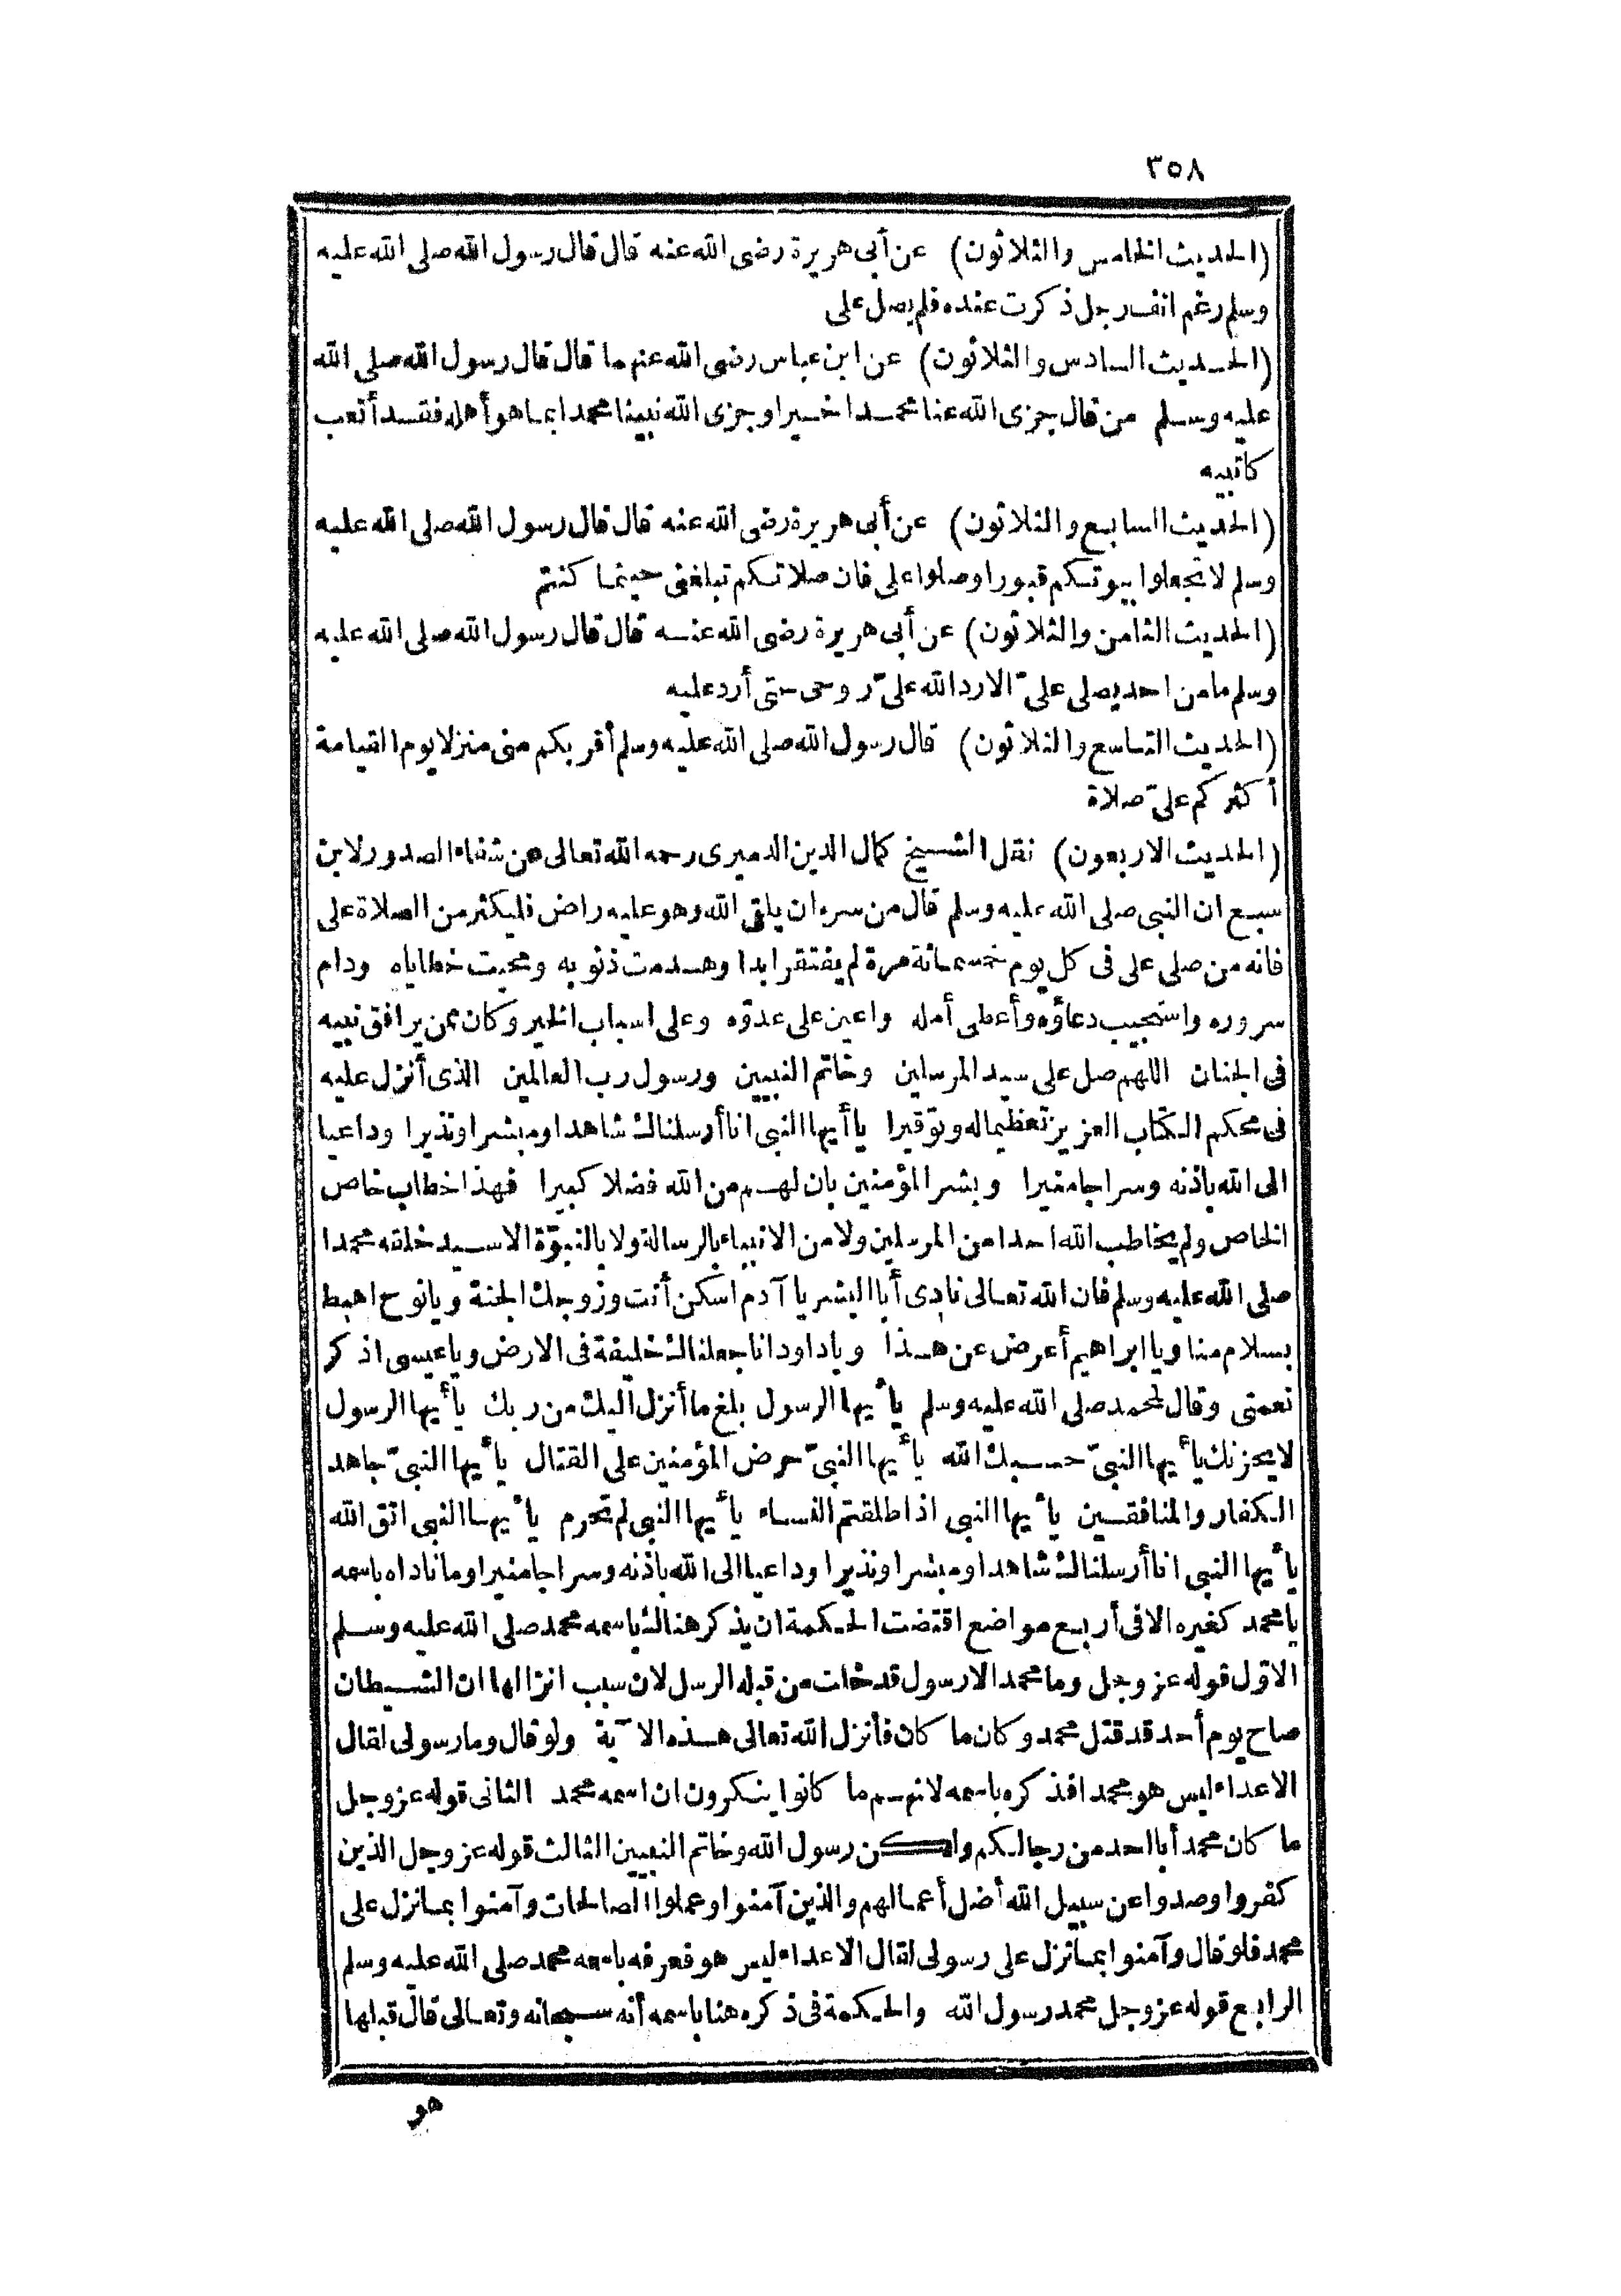 ٣٥٨
(الحديث الخامس والثلاثون) عن أبى هريرة رضى الله عنه قال قال رسول الله صلى الله عليه
وسلم رغم انف رجل ذكرت عنده فلم يصل على
(الحديث السادس والثلاثون) عن ابن عباس رضى الله عنهما قال قال رسول الله صلى الله
عليه وسلم من قال جزى الله عنا محمدا خيرا وجزى الله نبينا محمدا بما هو أهله فقد أتعب
كاتبيه
(الحديث السابع والثلاثون) عن أبى هريرة رضى الله عنه قال قال رسول الله صلى الله عليه
وسلم لا تجعلوا بيوتكم قبورا وصلوا على فان صلاتكم تبلغنى حيثما كنتم
(الحديث الثامن والثلاثون) عن أبى هريرة رضى الله عنه قال قال رسول الله صلى الله عليه
وسلم ما من احد يصلى علىّ الا رد الله علىّ روحى حتى أرد عليه
(الحديث التاسع والثلاثون) قال رسول الله صلى الله عليه وسلم أقربكم منى منزلا يوم القيامة
أكثركم علىّ صلاة
(الحديث الاربعون) نقل الشيخ كمال الدين الدميرى رحمه الله تعالى عن شفاء الصدور لابن
سبع ان النبى صلى الله عليه وسلم قال من سره ان يلقى الله وهو عليه راض فليكثر من الصلاة على
فانه من صلى على فى كل يوم خمسمائة مرة لم يفتقر ابدا وهدمت ذنوبه ومحيت خطاياه ودام
سروره واستجيب دعاؤه وأعطى أمله واعين على عدوّه وعلى اسباب الخير وكان ممن يرافق نبيه
فى الجنان اللهم صل على سيد المرسلين وخاتم النبيين ورسول رب العالمين الذى أنزل عليه
فى محكم الكتاب العزيز تعظيما له وتوقيرا يا أيها النبى انا أرسلناك شاهدا ومبشرا ونذيرا وداعيا
الى الله باذنه وسراجا منيرا وبشر المؤمنين بان لهم من الله فضلا كبيرا فهذا خطاب خاص
الخاص ولم يخاطب الله احدا من المرسلين ولا من الانبياء بالرسالة ولا بالنبوّة الا سيد خلقه محمدا
صلى الله عليه وسلم فان الله تعالى نادى أبا البشر يا آدم اسكن أنت وزوجك الجنة ويا نوح اهبط
بسلام منا ويا ابراهيم أعرض عن هذا ويا داود انا جعلناك خليفة فى الارض ويا عيسى اذكر
نعمتى وقال لمحمد صلى الله عليه وسلم يا أيها الرسول بلغ ما أنزل اليك من ربك يا أيها الرسول
لا يحزنك يا أيها النبىّ حسبك الله يا أيها النبىّ حرض المؤمنين على القتال يا أيها النبىّ جاهد
الكفار والمنافقين يا أيها النبى اذا طلقتم النساء يا أيها النبى لم تحرم يا أيها النبى اتق الله
يا أيها النبى انا أرسلناك شاهدا ومبشرا ونذيرا وداعيا الى الله باذنه وسراجا منيرا وما ناداه باسمه
يا محمد كغيره الا فى أربع مواضع اقتضت الحكمة ان يذكر هناك باسمه محمد صلى الله عليه وسلم
الاوّل قوله عز وجل وما محمد الا رسول قد خلت من قبله الرسل لان سبب انزالها ان الشيطان
صاح يوم أحد قد قتل محمد وكان ما كان فأنزل الله تعالى هذه الآية ولو قال وما رسولى لقال
الاعداء ليس هو محمد افذكره باسمه لانهم ما كانوا ينكرون ان اسمه محمد الثانى قوله عز وجل
ما كان محمد أبا احد من رجالكم ولكن رسول الله وخاتم النبيين الثالث قوله عز وجل الذين
كفروا وصدوا عن سبيل الله أضل أعمالهم والذين آمنوا وعملوا الصالحات وآمنوا بما نزل على
محمد فلو قال وآمنوا بما نزل على رسولى لقال الاعداء ليس هو فعرفه باسمه محمد صلى الله عليه وسلم
الرابع قوله عز وجل محمد رسول الله والحكمة فى ذكره هنا باسمه أنه سبحانه وتعالى قال قبلها
هو